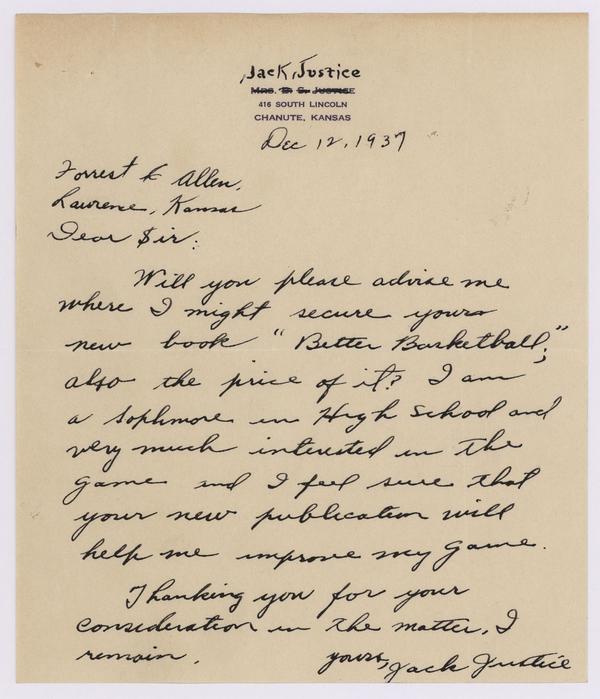 Jack Justice
Mrs. D. S. Justice
416 South Lincoln
Chanute, Kansas
Dec 12, 1937
Forrest C Allen,
Lawrence, Kansas
Dear Sir:
Will you please advise me
where I might secure your
new book "Better Basketball";
also the price of it? I am
a sophmore in High School and
very much interested in the
game and I feel sure that
your new publication will
help me improve my game.
Thanking you for your
consideration in the matter, I
remain, yours, Jack Justice